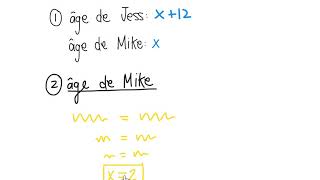 ① âge de Jess: x+12
âge de Mike: x
② âge de Mike
=
=
=